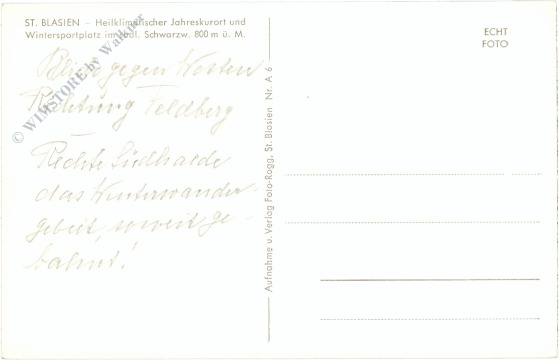 ST. BLASIEN – Heilklimatischer Jahreskurort und
Wintersportplatz im südl. Schwarzw. 800 m ü. M.
ECHT
FOTO
Blick gegen Westen
Richtung Feldberg
Rechte Südhalde
das Winterwander-
gebiet, soweit ge-
bahnt!
Aufnahme u. Verlag Foto-Rogg, St. Blasien Nr. A 6
© WIMSTORE by Walkner